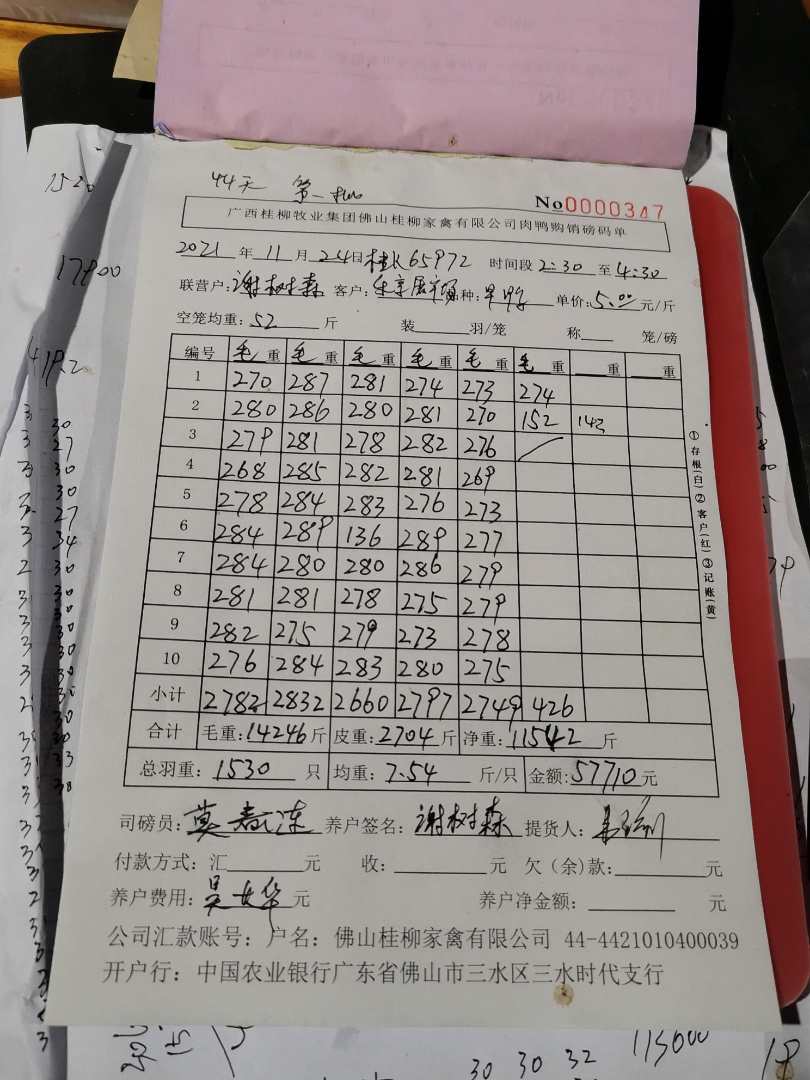 1520
17900
419.2
44天 第一批
No0000347
广西桂柳牧业集团佛山桂柳家禽有限公司肉鸭购销磅码单
2021 年 11 月 24日 65972 时间段 2:30 至 4:30
联营户:谢树森 客户: 品种: 单价:5.00 元/斤
空笼均重:52 斤 装 羽/笼 称 笼/磅
编号 毛重 毛重 毛重 毛重 毛重 毛重 重 重
1 270 287 281 274 273 274
2 280 286 280 281 270 152 142
3 279 281 278 282 276
4 268 285 282 281 269
5 278 284 283 276 273
6 284 289 136 289 277
7 284 280 280 286 279
8 281 281 278 275 279
9 282 275 279 273 278
10 276 284 283 280 275
小计 2782 2832 2660 2797 2749 426
合计 毛重:14246斤 皮重:2704斤 净重:11542 斤
总羽重:1530 只 均重:7.54 斤/只 金额:57710元
司磅员: 养户签名:谢树森 提货人:
付款方式:汇 元 收: 元 欠(余)款: 元
养户费用: 元 养户净金额: 元
公司汇款账号:户名:佛山桂柳家禽有限公司 44-4421010400039
开户行:中国农业银行广东省佛山市三水区三水时代支行
①存根(白)②客户(红)③记账(黄)
30
27
30
30
27
34
30
30
30
30
30
30
30
30
30
33
30
30 30 32
113000